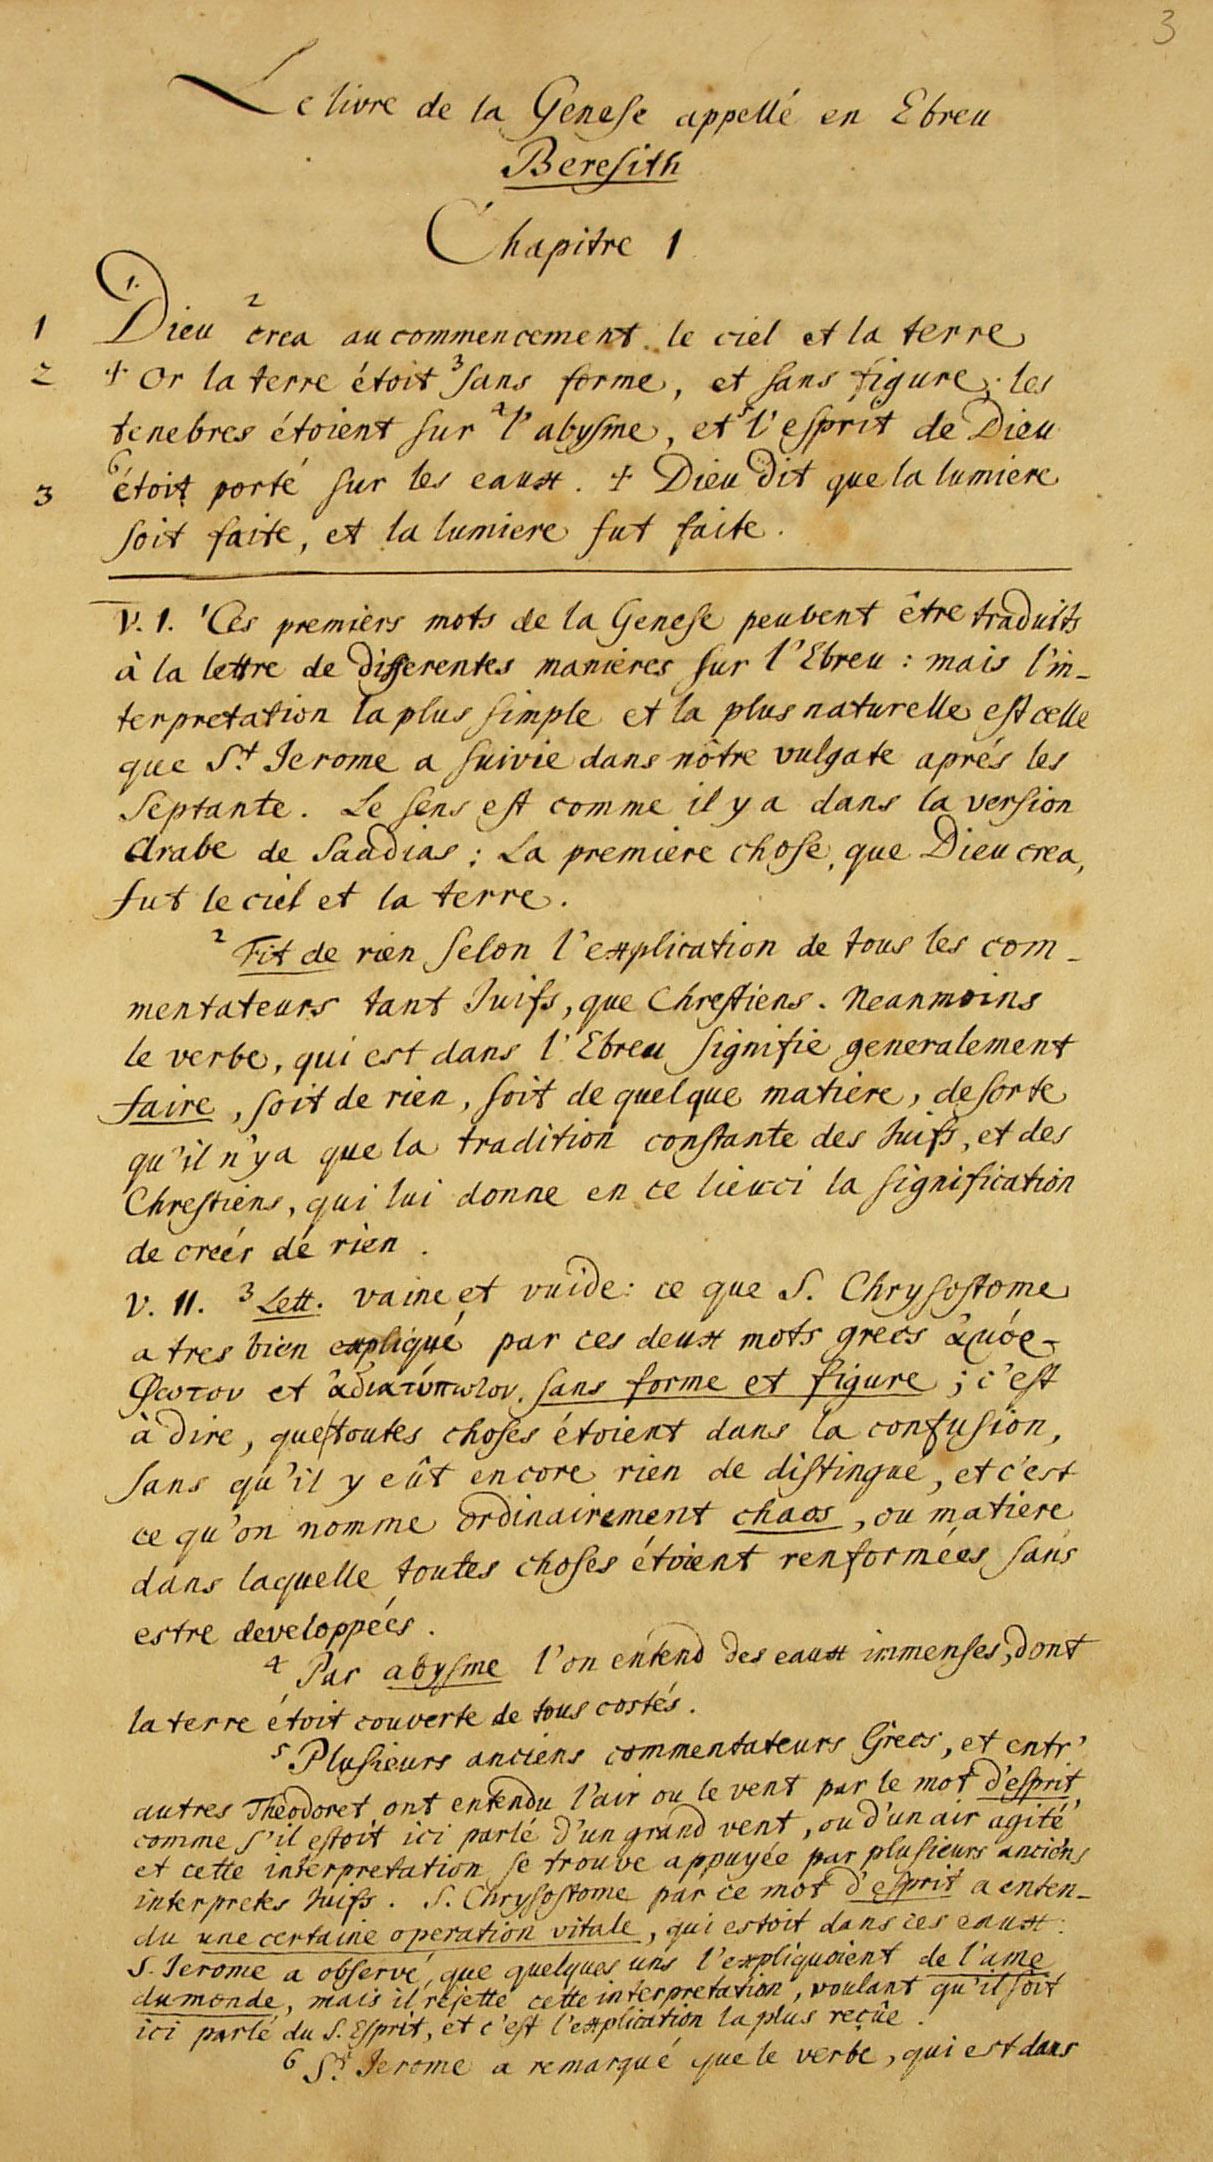 3
Le livre de la Genese appellé en Ebreu
Beresith
Chapitre 1
1 1. Dieu 2 crea au commencement le ciel et la terre
2 + Or la terre étoit 3 sans forme, et sans figure; les
tenebres étoient sur 4 l'abysme, et 5 l'esprit de Dieu
3 6 étoit porté sur les eaux. + Dieu dit que la lumiere
soit faite, et la lumiere fut faite.
V. 1. 1 Ces premiers mots de la Genese peuvent être traduits
à la lettre de differentes manieres sur l'Ebreu : mais l'in-
terpretation la plus simple et la plus naturelle est celle
que St. Jerome a suivie dans nôtre vulgate aprés les
Septante. Le sens est comme il y a dans la version
Arabe de Saadias : La premiere chose, que Dieu crea,
fut le ciel et la terre.
2 Fit de rien selon l'explication de tous les com-
mentateurs tant Juifs, que Chrestiens. Neanmoins
le verbe, qui est dans l'Ebreu signifie generalement
faire, soit de rien, soit de quelque matiere, de sorte
qu'il n'y a que la tradition constante des Juifs, et des
Chrestiens, qui lui donne en ce lieu ci la signification
de creér de rien.
V. 11. 3 Lett. vaine et vuide : ce que S. Chrysostome
a tres bien expliqué par ces deux mots grecs ἀμόρ-
φωτον et ἀδιατύπωτον. sans forme et figure ; c'est
à dire, que toutes choses étoient dans la confusion,
sans qu'il y eût encore rien de distingué, et c'est
ce qu'on nomme ordinairement chaos, ou matiere
dans laquelle toutes choses étoient renformées sans
estre developpées.
4 Par abysme l'on entend des eaux immenses, dont
la terre étoit couverte de tous costés.
5 Plusieurs anciens commentateurs Grecs, et entr'
autres Theodoret ont entendu l'air ou le vent par le mot d'esprit,
comme s'il estoit ici parlé d'un grand vent, ou d'un air agité
et cette interpretation se trouve appuyée par plusieurs anciens
interpretes Juifs. S. Chrysostome par ce mot d'esprit a enten-
du une certaine operation vitale, qui estoit dans ces eaux :
S. Jerome a observé, que quelques uns l'expliquoient de l'ame
du monde, mais il rejette cette interpretation, voulant qu'il soit
ici parlé du S. Esprit, et c'est l'explication la plus reçûe.
6 St. Jerome a remarqué que le verbe, qui est dans